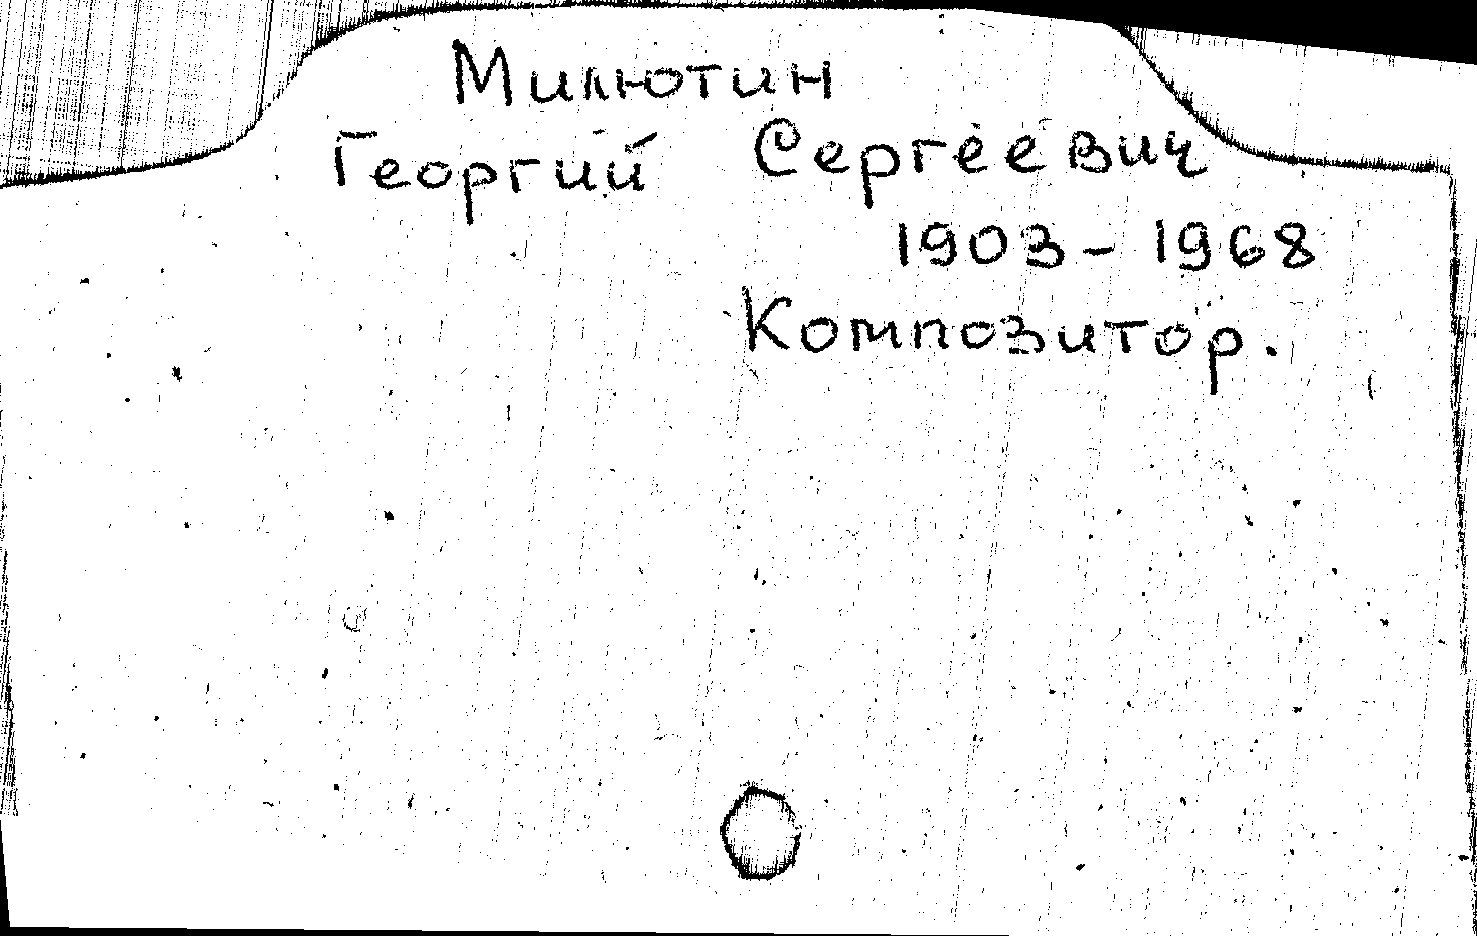 Милютин
Георгий Сергеевич
1903-1968
Композитор.